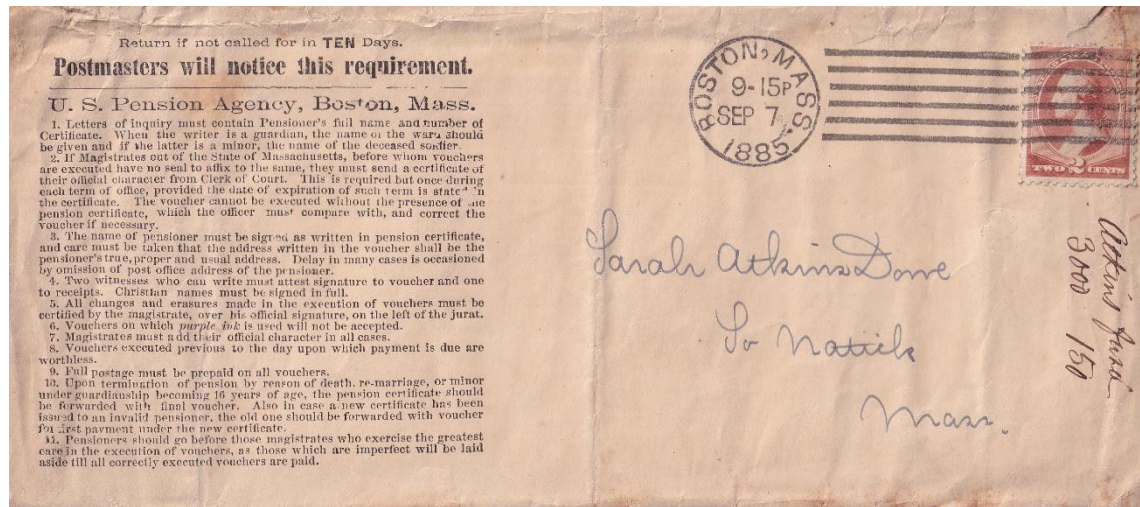 Return if not called for in TEN Days.
Postmasters will notice this requirement.
U. S. Pension Agency, Boston, Mass.
1. Letters of inquiry must contain Pensioner's full name and number of
Certificate. When the writer is a guardian, the name of the ward should
be given and if the latter is a minor, the name of the deceased soldier.
2. If Magistrates out of the State of Massachusetts, before whom vouchers
are executed have no seal to affix to the same, they must send a certificate of
their official character from Clerk of Court. This is required but once during
each term of office, provided the date of expiration of such term is stated in
the certificate. The voucher cannot be executed without the presence of the
pension certificate, which the officer must compare with, and correct the
voucher if necessary.
3. The name of pensioner must be signed as written in pension certificate,
and care must be taken that the address written in the voucher shall be the
pensioner's true, proper and usual address. Delay in many cases is occasioned
by omission of post office address of the pensioner.
4. Two witnesses who can write must attest signature to voucher and one
to receipts. Christian names must be signed in full.
5. All changes and erasures made in the execution of vouchers must be
certified by the magistrate, over his official signature, on the left of the jurat.
6. Vouchers on which purple ink is used will not be accepted.
7. Magistrates must add their official character in all cases.
8. Vouchers executed previous to the day upon which payment is due are
worthless.
9. Full postage must be prepaid on all vouchers.
10. Upon termination of pension by reason of death, re-marriage, or minor
under guardianship becoming 16 years of age, the pension certificate should
be forwarded with final voucher. Also in case a new certificate has been
issued to an invalid pensioner, the old one should be forwarded with voucher
for first payment under the new certificate.
11. Pensioners should go before those magistrates who exercise the greatest
care in the execution of vouchers, as those which are imperfect will be laid
aside till all correctly executed vouchers are paid.
BOSTON, MASS.
9-15P
SEP 7
1885
TWO 2 CENTS
Sarah Atkins Dove
So Natick
Mass.
Atkins
3000 150